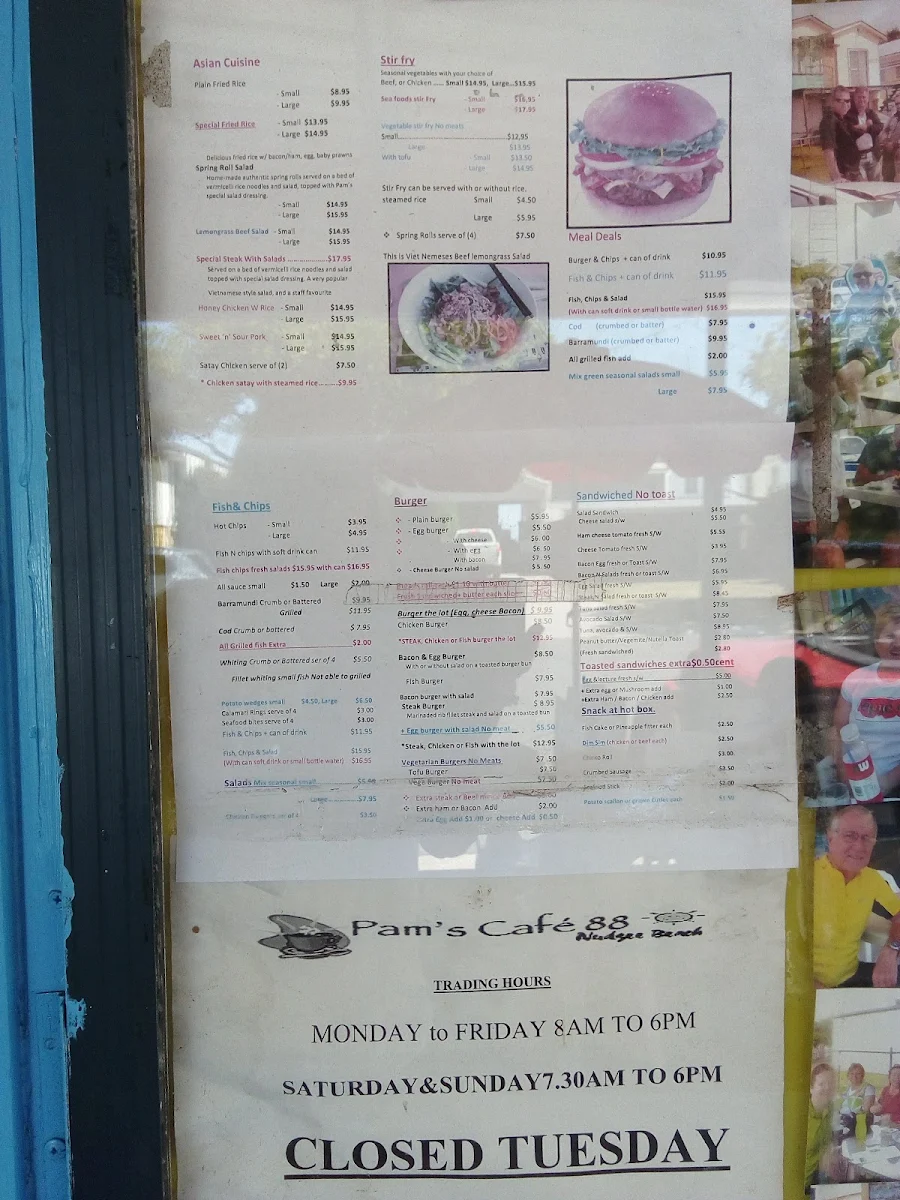 Asian Cuisine
Plain Fried Rice
- Small $8.95
- Large $9.95
Special Fried Rice - Small $13.95
- Large $14.95
Delicious fried rice w/ bacon/ham, egg, baby prawns
Spring Roll Salad
Home-made authentic spring rolls served on a bed of
vermicelli rice noodles and salad, topped with Pam's
special salad dressing.
- Small $14.95
- Large $15.95
Lemongrass Beef Salad - Small $14.95
- Large $15.95
Special Steak With Salads ......................$17.95
Served on a bed of vermicelli rice noodles and salad
topped with special salad dressing. A very popular
Vietnamese style salad, and a staff favourite
Honey Chicken W Rice - Small $14.95
- Large $15.95
Sweet 'n' Sour Pork - Small $14.95
- Large $15.95
Satay Chicken serve of (2) $7.50
* Chicken satay with steamed rice.........$9.95
Stir fry
Seasonal vegetables with your choice of
Beef, or Chicken ..... Small $14.95, Large..$15.95
Sea foods stir Fry - Small $16.95
- Large $17.95
Vegetable stir fry No meats
Small............................................$12.95
Large $13.95
With tofu - Small $13.50
- Large $14.95
Stir Fry can be served with or without rice,
steamed rice Small $4.50
Large $5.95
❖ Spring Rolls serve of (4) $7.50
This is Viet Nemeses Beef lemongrass Salad
Meal Deals
Burger & Chips + can of drink $10.95
Fish & Chips + can of drink $11.95
Fish, Chips & Salad $15.95
(With can soft drink or small bottle water) $16.95
Cod (crumbed or batter) $7.95
Barramundi (crumbed or batter) $9.95
All grilled fish add $2.00
Mix green seasonal salads small $5.95
Large $7.95
Fish& Chips
Hot Chips - Small $3.95
- Large $4.95
Fish N chips with soft drink can $11.95
Fish chips fresh salads $15.95 with can $16.95
All sauce small $1.50 Large $2.00
Barramundi Crumb or Battered $9.95
Grilled $11.95
Cod Crumb or battered $7.95
All Grilled fish Extra $2.00
Whiting Crumb or Battered ser of 4 $5.50
Fillet whiting small fish Not able to grilled
Potato wedges small $4.50, Large $6.50
Calamari Rings serve of 4 $3.00
Seafood bites serve of 4 $3.00
Fish & Chips + can of drink $11.95
Fish, Chips & Salad $15.95
(With can soft drink or small bottle water) $16.95
Salads Mix seasonal small
Large $7.95
$3.50
Burger
❖ - Plain burger $5.95
❖ - Egg burger $5.50
❖ - With cheese $6.00
❖ - With egg $6.50
With bacon $7.95
❖ - Cheese Burger No salad $5.50
Burger the lot (Egg, cheese Bacon) $9.95
Chicken Burger $8.50
*STEAK, Chicken or Fish burger the lot $12.95
Bacon & Egg Burger $8.50
With or without salad on a toasted burger bun
Fish Burger $7.95
Bacon burger with salad $7.95
Steak Burger $8.95
Marinaded rib fillet steak and salad on a toasted bun
+ Egg burger with salad No meat $5.50
*Steak, Chicken or Fish with the lot $12.95
Vegetarian Burgers No Meats $7.50
Tofu Burger $7.50
Vege Burger No meat $7.50
❖ Extra ham or Bacon Add $2.00
Extra Egg Add $1.00 or cheese Add $0.50
Sandwiched No toast
Salad Sandwich $4.95
Cheese salad s/w $5.50
Ham cheese tomato fresh S/W $5.55
Cheese Tomato fresh S/W $3.95
Bacon Egg fresh or Toast S/W $7.95
Bacon N Salads fresh or toast S/W $6.95
Egg Salad fresh S/W $5.95
Steak N Salad fresh or toast S/W $8.45
Tuna salad fresh S/W $7.95
Avocado Salad S/W $7.50
Tuna, avocado & S/W $8.95
Peanut butter/Vegemite/Nutella Toast $2.80
(Fresh sandwished) $2.80
Toasted sandwiches extra$0.50cent
Egg &lecture fresh s/w $5.00
+ Extra egg or Mushroom add $1.00
+Extra Ham / Bacon / Chicken add $2.50
Snack at hot box.
Fish Cake or Pineapple fitter each $2.50
Dim Sim (chicken or beef each) $2.50
$3.00
Crumbed sausage $3.50
Seafood Stick $2.00
Pam's Café 88
Nudgee Beach
TRADING HOURS
MONDAY to FRIDAY 8AM TO 6PM
SATURDAY&SUNDAY7.30AM TO 6PM
CLOSED TUESDAY